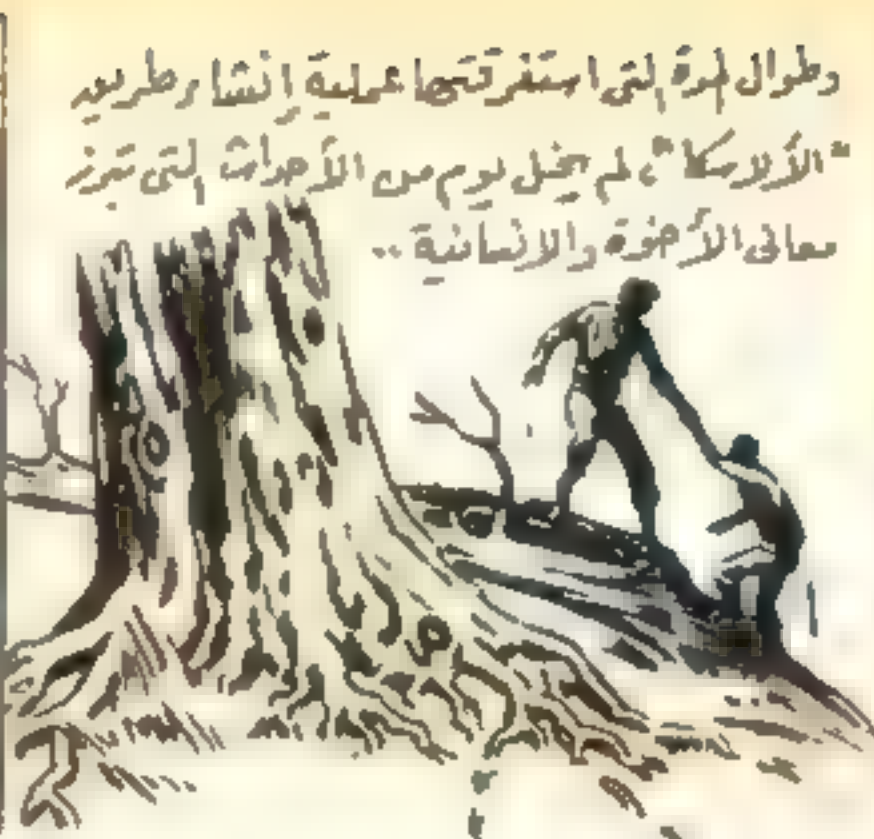 وطوال المدة التى استغرقتها عملية إنشاء طريق
"الألاسكا"، لم يخل يوم من الأحداث التى تبرز
معانى الأخوة والإنسانية ..